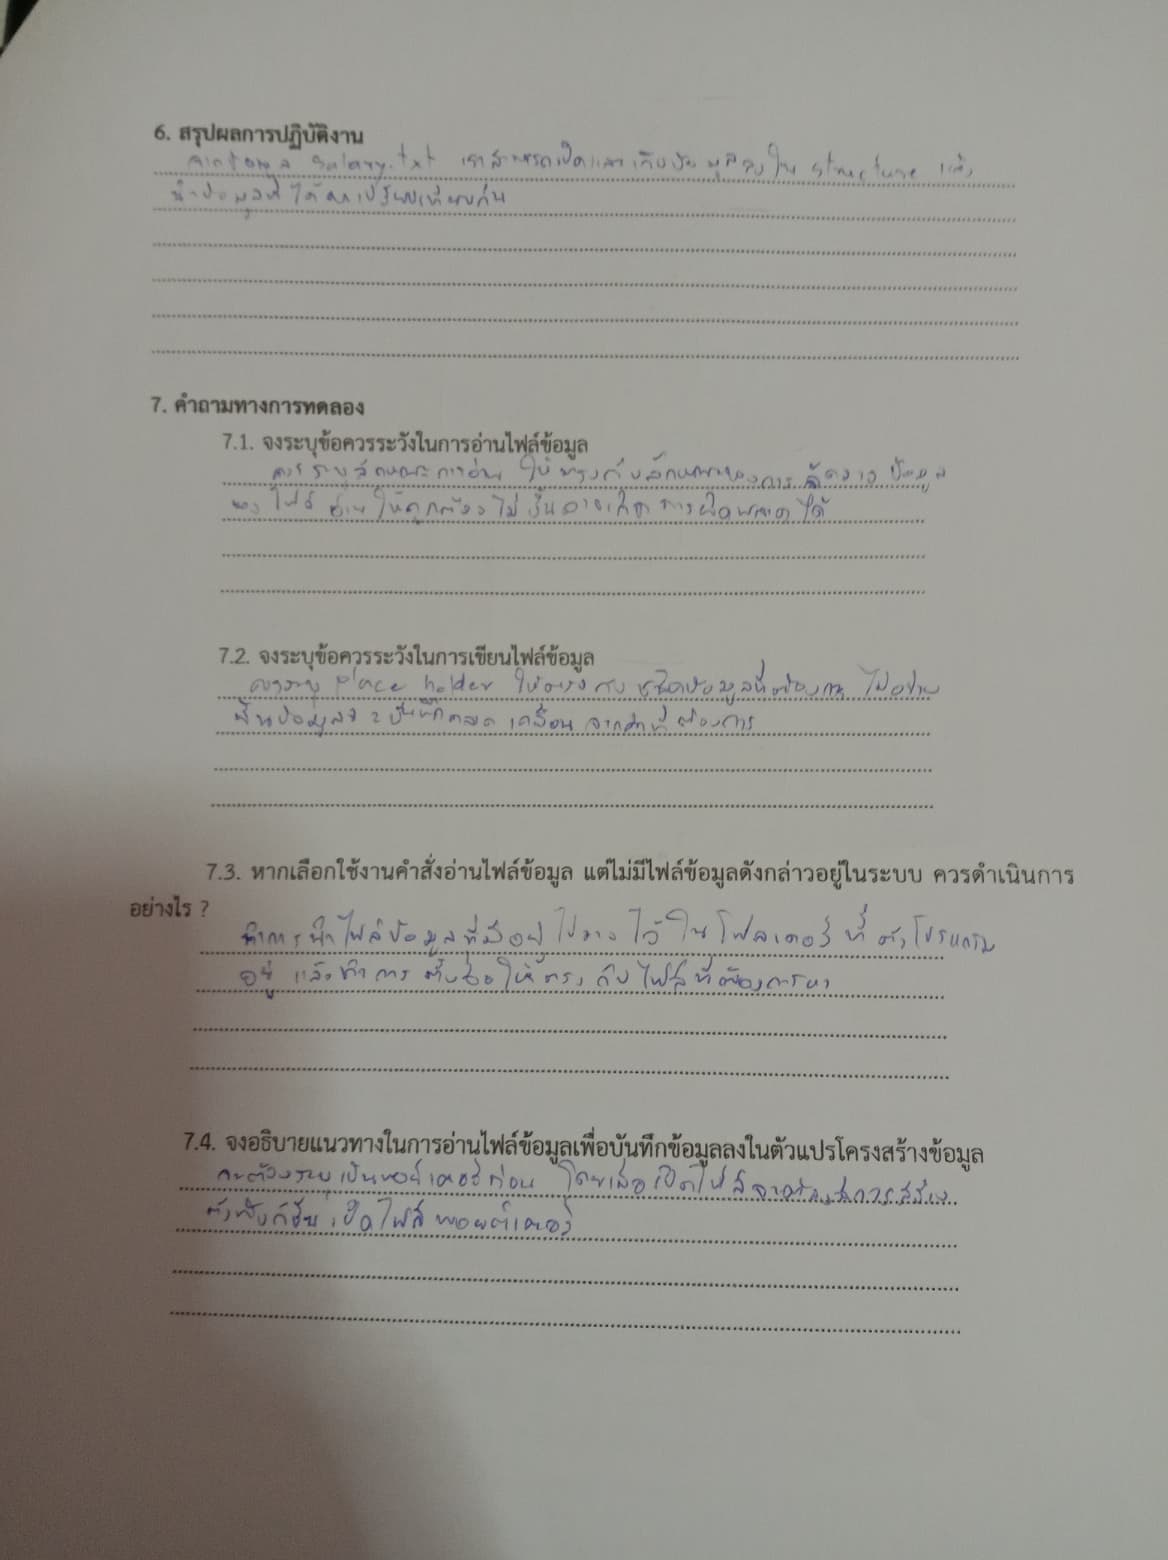 6. สรุปผลการปฏิบัติงาน
salary.txt เราสามารถเปิดและเก็บข้อมูลลงใน structure แล้ว
นำข้อมูลที่ได้มาเปรียบเทียบกัน
7. คำถามทางการทดลอง
7.1. จงระบุข้อควรระวังในการอ่านไฟล์ข้อมูล
ควรระบุลักษณะการอ่าน ให้ตรงกับลักษณะของการจัดวางข้อมูล
ของไฟล์ อ่านให้ถูกต้อง ไม่งั้นอาจเกิดการผิดพลาดได้
7.2. จงระบุข้อควรระวังในการเขียนไฟล์ข้อมูล
ควรระบุ place holder ให้ตรงกับ ชนิดข้อมูลที่ต้องการ ไม่อย่าง
นั้นข้อมูลจะบันทึกคลาดเคลื่อน จากค่าที่ต้องการ
7.3. หากเลือกใช้งานคำสั่งอ่านไฟล์ข้อมูล แต่ไม่มีไฟล์ข้อมูลดังกล่าวอยู่ในระบบ ควรดำเนินการ
อย่างไร ?
ทำการนำไฟล์ข้อมูลที่มีอยู่ ไปวางไว้ในโฟลเดอร์ ที่ตัวโปรแกรม
อยู่ แล้วทำการตั้งชื่อให้ตรงกับไฟล์ที่ต้องการหา
7.4. จงอธิบายแนวทางในการอ่านไฟล์ข้อมูลเพื่อบันทึกข้อมูลลงในตัวแปรโครงสร้างข้อมูล
จะต้องระบุเป็นพอยเตอร์ก่อน โดยเมื่อเปิดไฟล์
ตัวฟังก์ชัน เปิดไฟล์พอยต์เตอร์